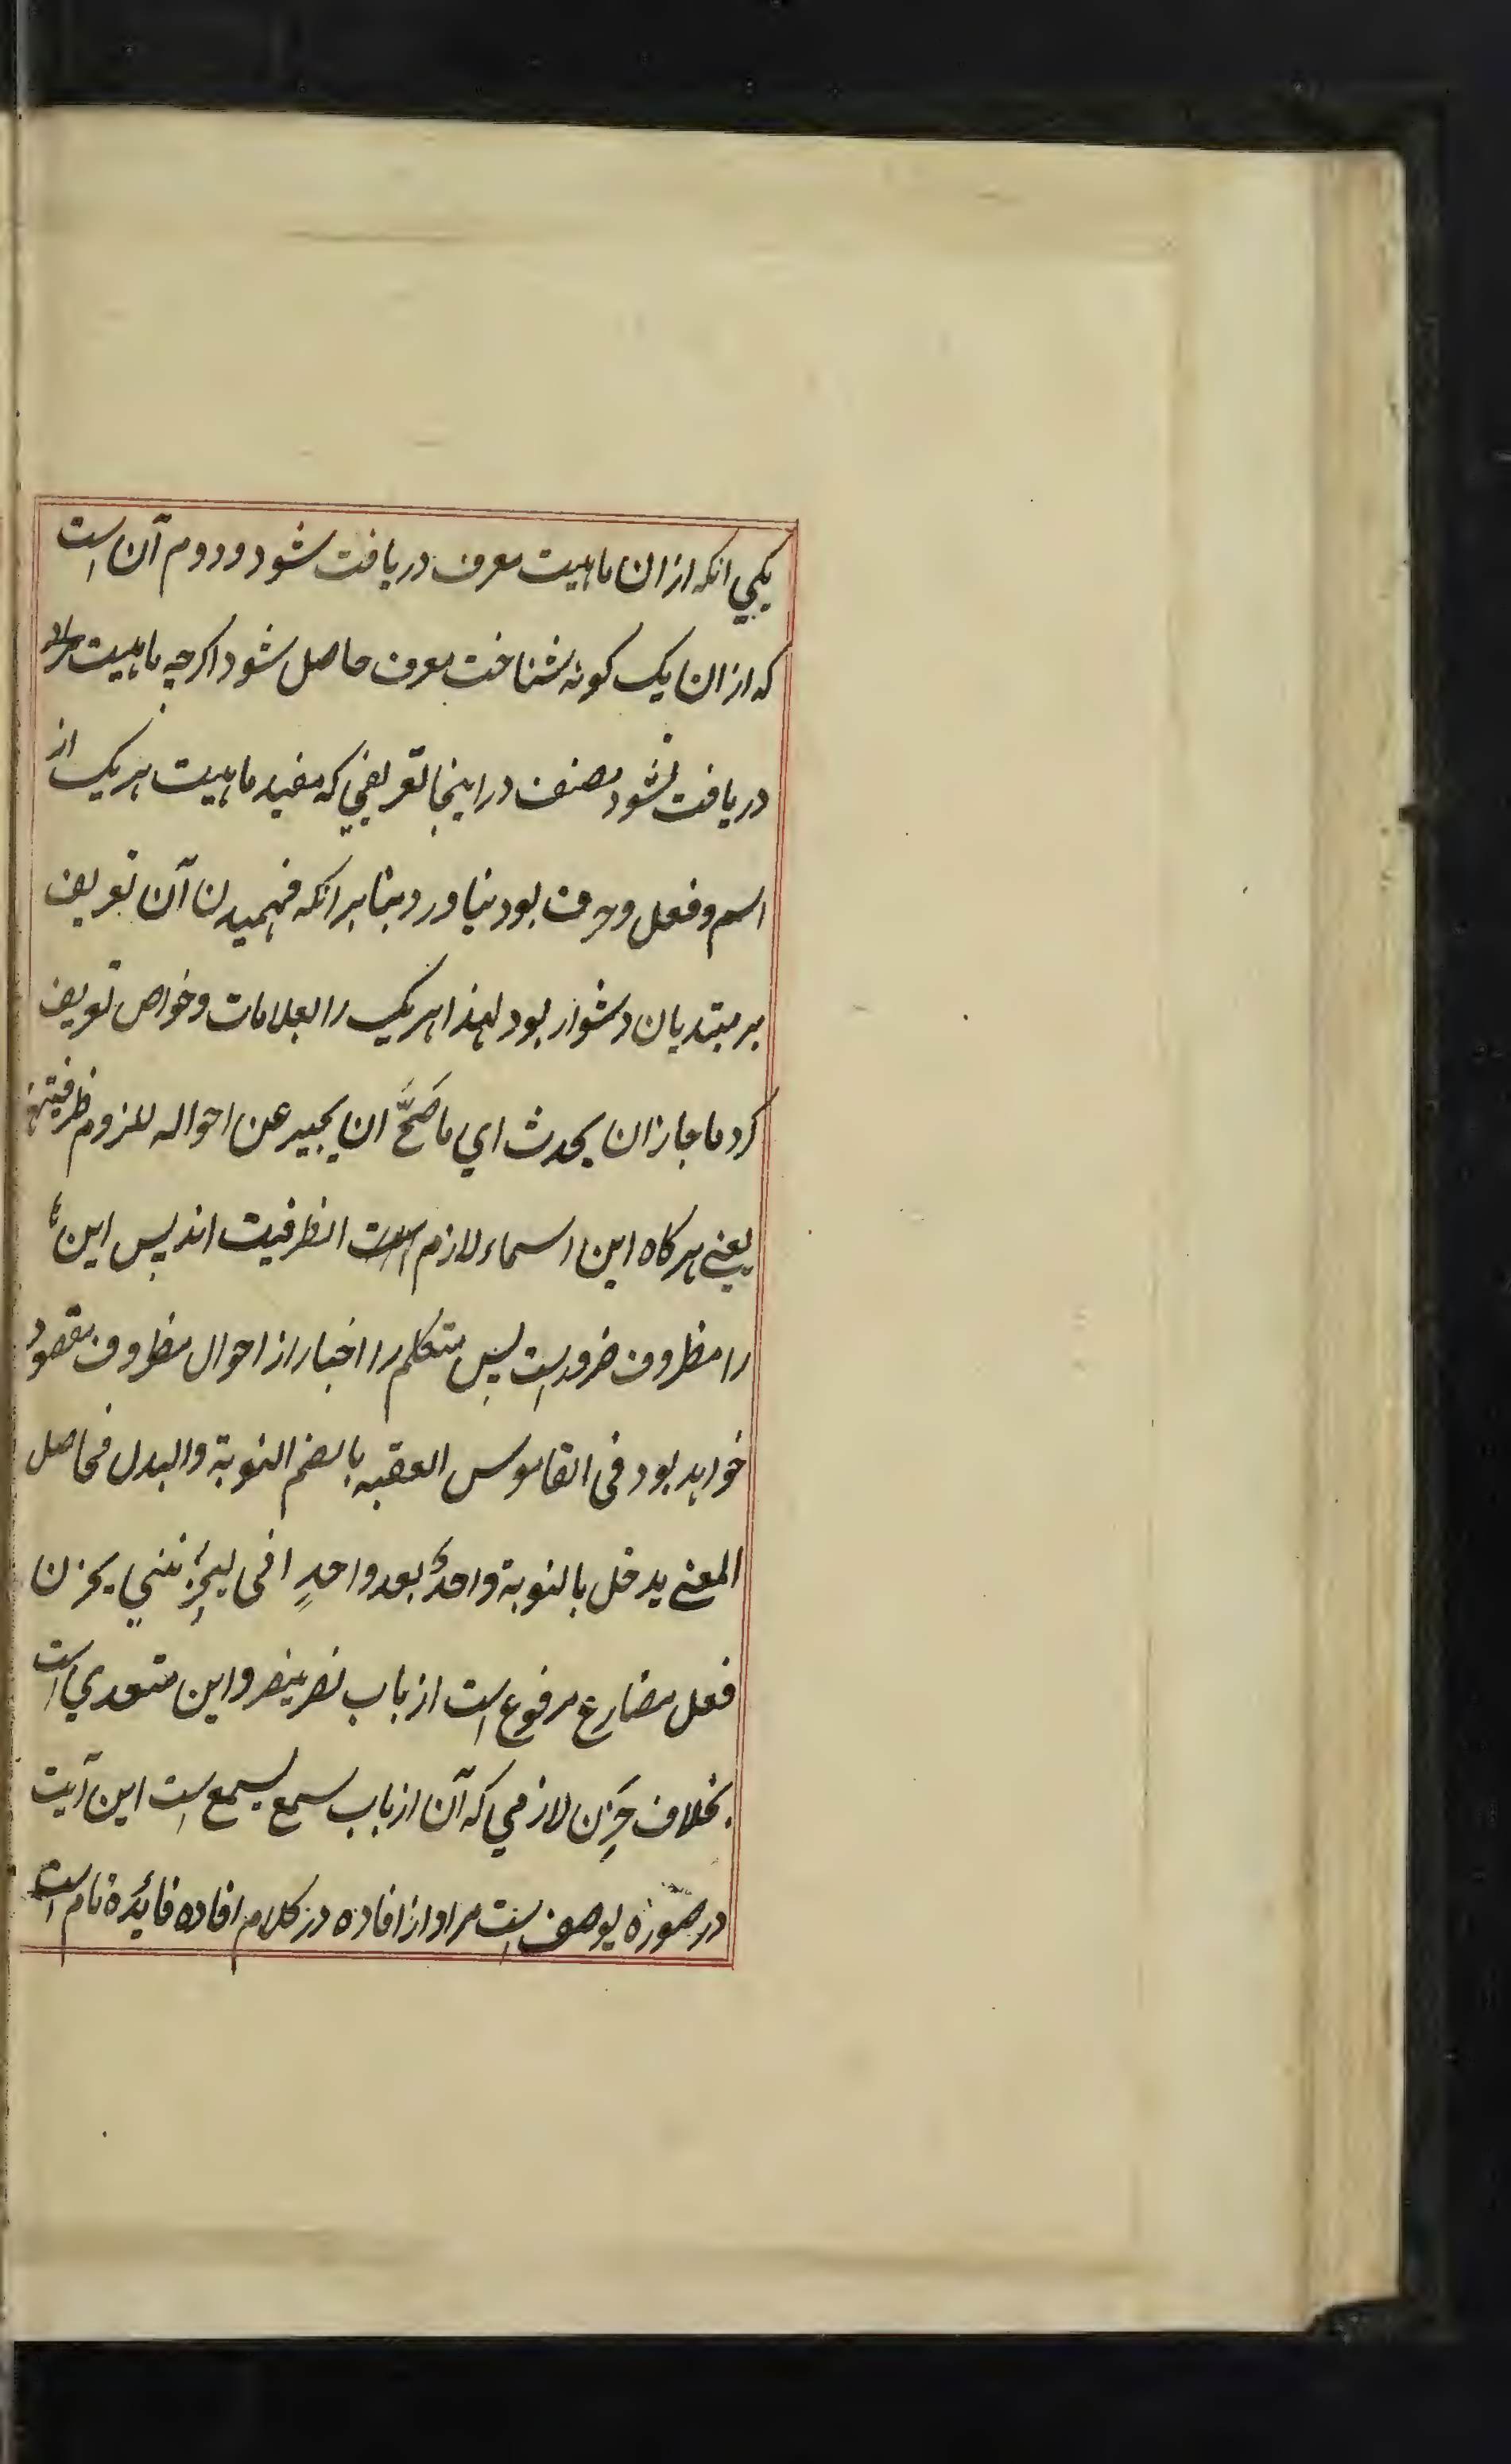 يكي انكه ازان ماهيت معرف دريافت شود ودوم آن است
كه ازان يك كونه شناخت معرف حاصل شود اكرچه ماهيت
دريافت نشود مصنف دراينجا تعريفي كه مفيد ماهيت هريك از
اسم وفعل وحرف بود نياورد بنابرانكه فهميدن آن تعريف
بر مبتديان دشوار بود لهذا هريك را بعلامات وخواص تعريف
كرد ما جاز ان يحدث اي ما صَحَّ ان يجير عن احواله للزوم ظرفيتها
يعني هركاه اين اسماء لازم الظرفيت اند پس اين
را مظروف ضرورست پس متكلم را اخبار از احوال مظروف مقصود
خواهد بود فى القاموس العقبه بالضم النوبة والبدل فحاصل
المعنى يدخل بالنوبة واحدٌ بعد واحدٍ افى ليحزنني يحزن
فعل مضارع مرفوع است از باب نصر ينصر واين متعدي است
بخلاف حَزِن لازمي كه آن از باب سمع يسمع است اين آيت
در صورة يوصف است مراد از افاده در كلام افاده فائدۀ تام است